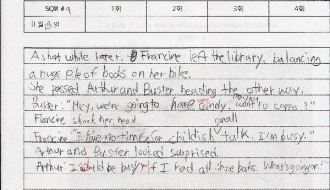 SQM #9 1회 2회 3회 4회
11월
A short while later. Francine left the library, balancing
a huge pile of books on her bike.
She passed Arthur and Buster heading the other way.
Buster: "Hey, we're going to have candy. want to come?"
Francine shook her head. small
Francine "I have no time for childish talk. I'm busy."
Arthur and Buster looked surprised.
Arthur I would be busy if I had all those books. What's going on?"